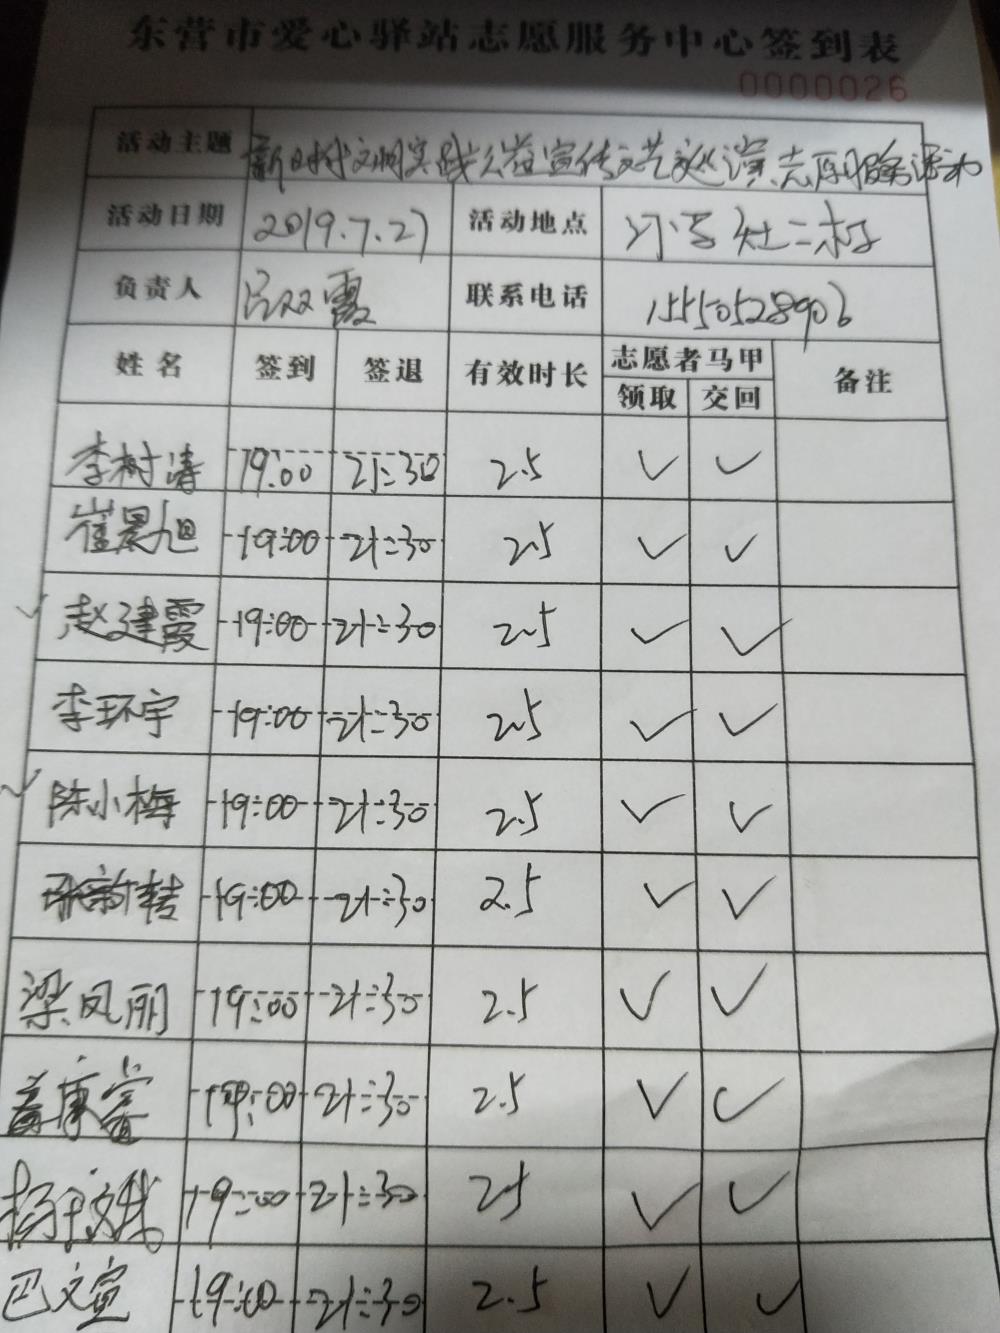 东营市爱心驿站志愿服务中心签到表
0000026
活动主题 新时代文明实践公益宣传文艺巡演志愿服务活动
活动日期 2019.7.27 活动地点 刁家灶二村
负责人 吕双霞 联系电话 15550528906
姓名 签到 签退 有效时长 志愿者马甲 备注
领取 交回
李树涛 19:00 21:30 2.5 ✓ ✓
崔晨旭 19:00 21:30 2.5 ✓ ✓
✓ 赵建霞 19:00 21:30 2.5 ✓ ✓
李环宇 19:00 21:30 2.5 ✓ ✓
✓ 陈小梅 19:00 21:30 2.5 ✓ ✓
19:00 21:30 2.5 ✓ ✓
梁凤丽 19:00 21:30 2.5 ✓ ✓
盖康睿 19:00 21:30 2.5 ✓ ✓
19:00 21:30 2.5 ✓ ✓
巴文宣 19:00 21:30 2.5 ✓ ✓